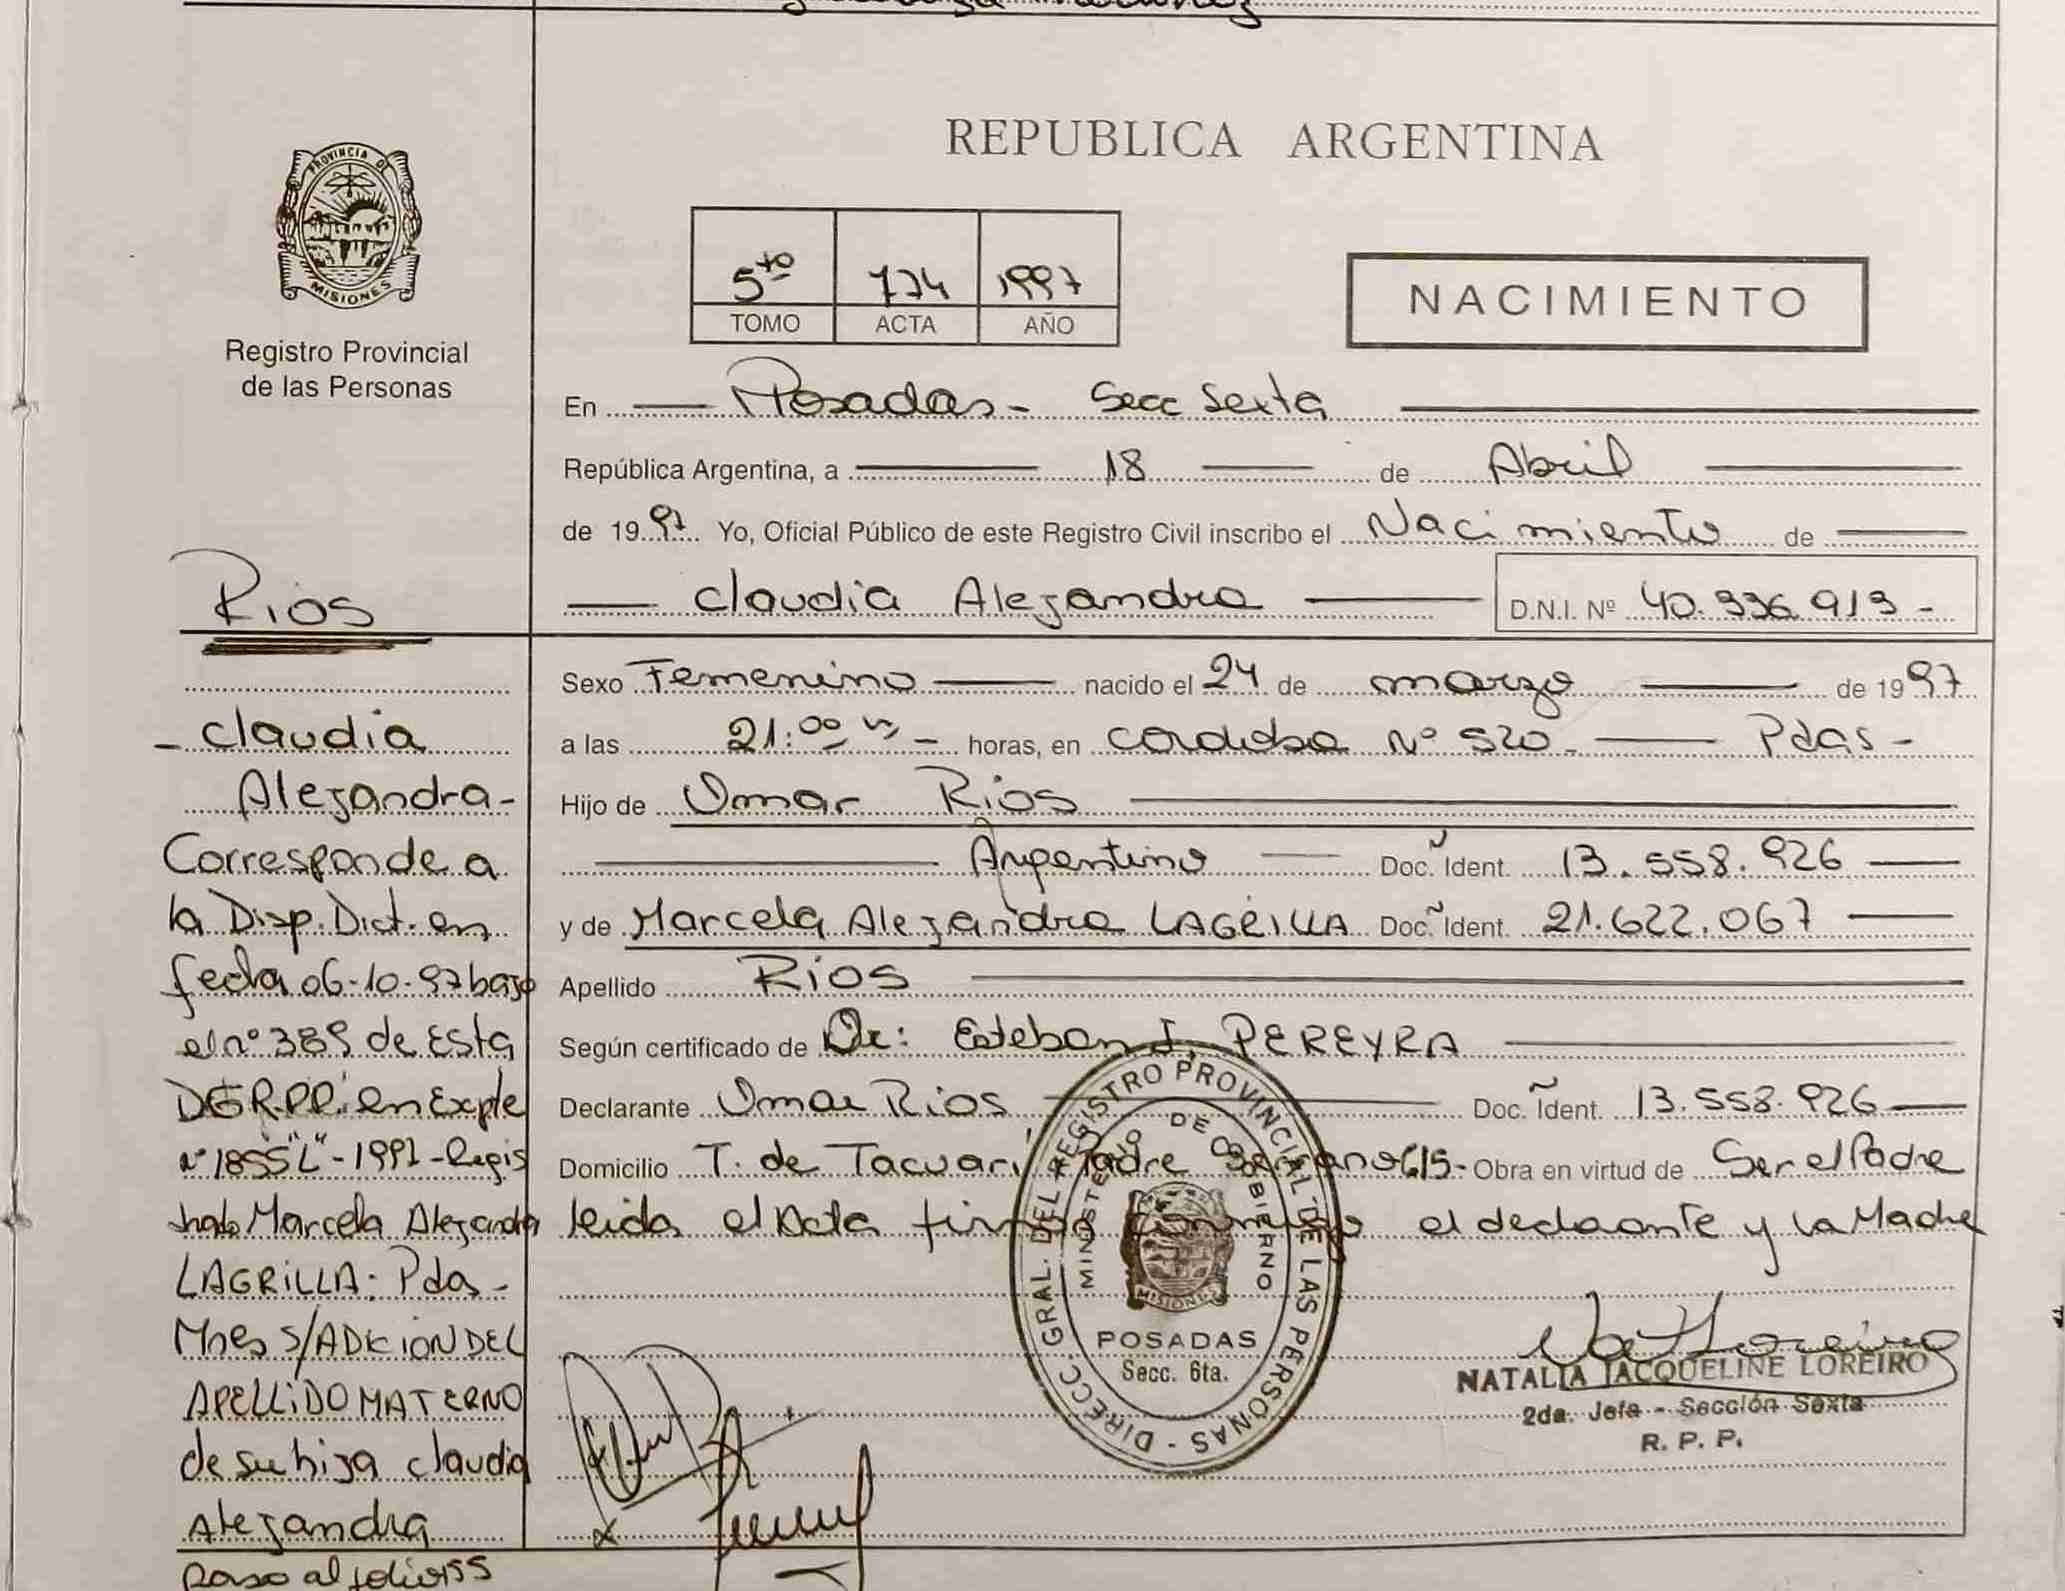 PROVINCIA DE
MISIONES
Registro Provincial
de las Personas
REPUBLICA ARGENTINA
5to 774 1997
TOMO ACTA AÑO
NACIMIENTO
En Posadas - Secc Sexta
República Argentina, a 18 de Abril
de 1997 Yo, Oficial Público de este Registro Civil inscribo el Nacimiento de
Claudia Alejandra D.N.I. Nº 40.336.913 -
Sexo Femenino nacido el 24 de marzo de 1997
a las 21:00 hs - horas, en Cordoba Nº 520 - Pdas -
Hijo de Omar Rios
Argentino Doc. Ident. 13.558.926
y de Marcela Alejandra LAGRILLA Doc. Ident. 21.622.067
Apellido Rios
Según certificado de Dr: Esteban J. PEREYRA
Declarante Omar Rios Doc. Ident. 13.558.926
Domicilio T. de Tacuarí Padre Obra en virtud de Ser el Padre
leida el Acta firma conmigo el declarante y la Madre
Rios
- Claudia
Alejandra -
Corresponde a
la Disp. Dict. en
fecha 06-10-97 bajo
el nº 389 de Esta
DGR.PP. en Expte
nº 1855 "L" - 1997 - Regis
trado Marcela Alejandra
LAGRILLA: Pdas -
Mnes S/ADICION DEL
APELLIDO MATERNO
de su hija Claudia
Alejandra
Paso al folio 155
DIRECC. GRAL. DEL REGISTRO PROVINCIAL DE LAS PERSONAS -
MINISTERIO DE GOBIERNO
MISIONES
POSADAS
Secc. 6ta.
NATALIA JACQUELINE LOREIRO
2da. Jefa - Sección Sexta
R. P. P.